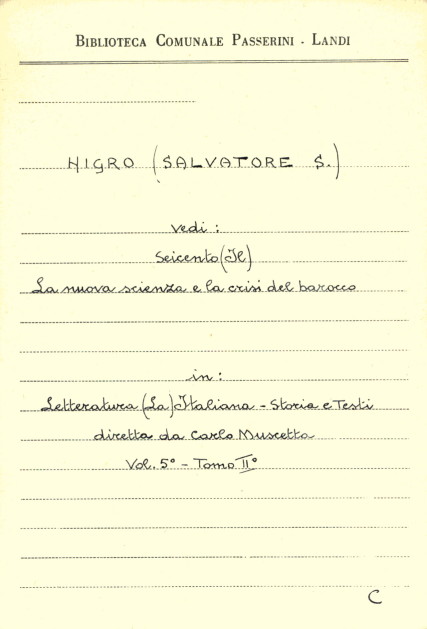 BIBLIOTECA COMUNALE PASSERINI - LANDI
NIGRO (SALVATORE S.)
vedi :
Seicento (Il)
La nuova scienza e la crisi del barocco
in :
Letteratura (La) Italiana - Storia e Testi
diretta da Carlo Muscetta
Vol. 5° - Tomo II°
C